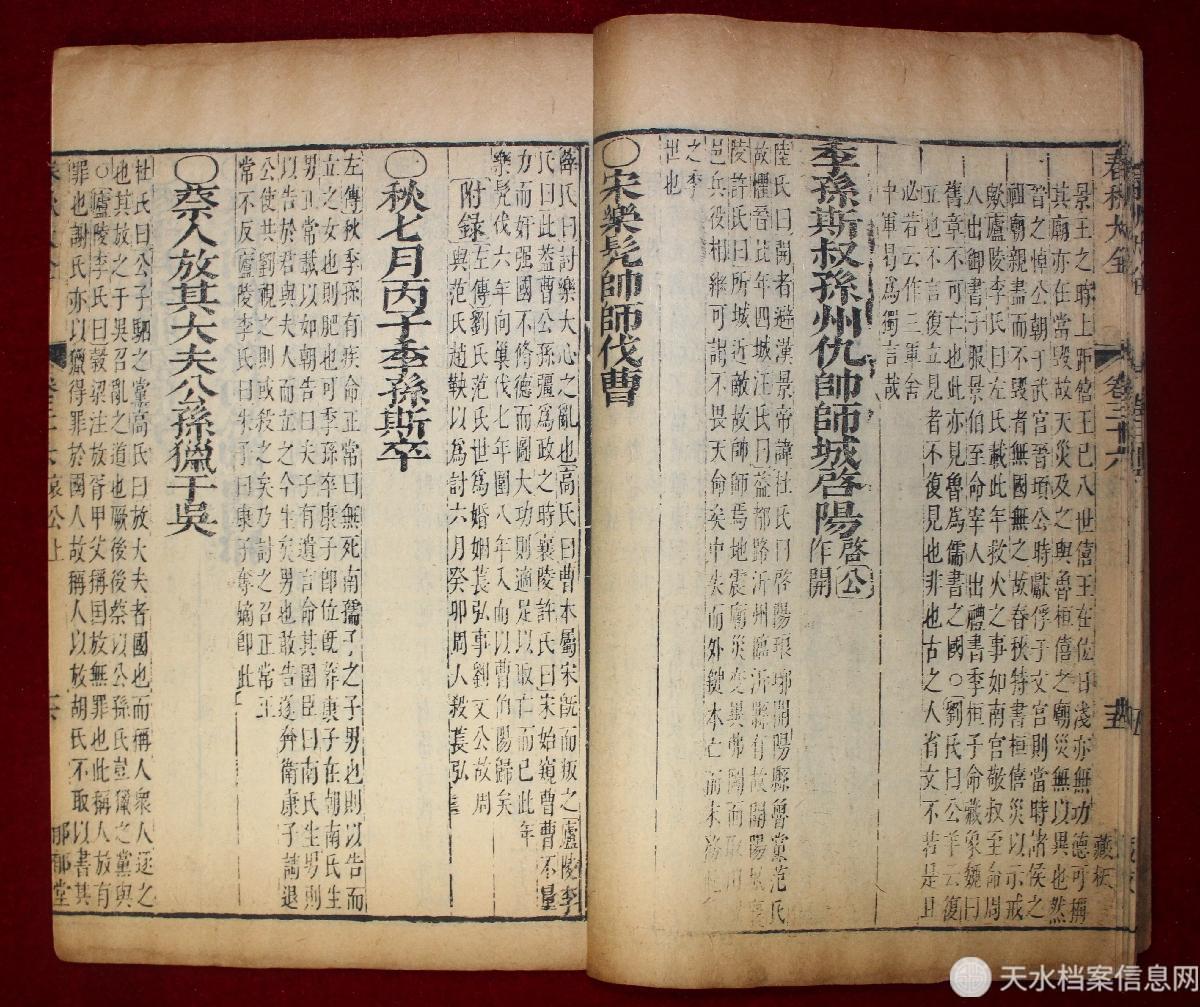 春秋大全 卷三十六
景王之時上距僖王已八世僖王在位日淺亦無功德可稱
其廟亦在當毀故天災及之與魯桓僖之廟災無以異也然
晉之悼公朝于武宮晉頃公時獻俘于文宮則當時諸侯之
祖廟親盡而不毀者無國無之故春秋特書桓僖災以示戒
歟廬陵李氏曰左氏載此年救火之事如南宮敬叔至命周
人出御書子服景伯至命宰人出禮書季桓子命藏象魏曰
舊章不可亡也此亦見魯為儒書之國○劉氏曰公羊云復
立也不言復立見者不復見也非也古之人省文不若是且
必若云作三軍舍
中軍曷為獨言哉
季孫斯叔孫州仇帥師城啓陽啓公
作開
陸氏曰開者避漢景帝諱杜氏曰啓陽琅琊開陽縣魯黨范氏
故懼晉比年四城汪氏曰益都路沂州臨沂縣有故開陽城襄
陵許氏曰所城近敵故帥師焉地震廟災變異常
邑兵役相繼可謂不畏天命矣中失而外鍵本亡而末
之季
世也
○宋樂髡帥師伐曹
薛氏曰討樂大心之亂也高氏曰曹本屬宋旣而叛之廬陵李
氏曰此蓋曹公孫彊為政之時襄陵許氏曰宋始窺曹曹不量
力而奸强國不脩德而圖大功則適足以取亡而已此年
樂髡伐六年向巢伐七年圍八年入而以曹伯陽歸矣
附録左傳劉氏范氏世為婚姻萇弘事劉文公故周
與范氏趙鞅以為討六月癸卯周人殺萇弘
○秋七月丙子季孫斯卒
左傳秋季孫有疾命正常曰無死南孺子之子男也則以告而
立之女也則肥也可季孫卒康子卽位旣葬康子在朝南氏生
男正常載以如朝告曰夫子有遺言命其圉臣曰南氏生男則
以告於君與大夫而立之今生矣男也敢告遂奔衛康子請退
公使共劉視之則或殺之矣乃討之召正常正
常不反廬陵李氏曰朱子曰康子奪嫡卽此
○蔡人放其大夫公孫獵于吳
杜氏曰公子駟之黨高氏曰放大夫者國也而稱人衆人逐之
也其放之于吳召亂之道也厥後蔡以公孫氏豈獵之黨與
○廬陵李氏曰穀梁注放胥甲父稱国放無罪也此稱人放有
罪也謝氏亦以獵得罪於國人故稱人以放胡氏不取以書其
天水档案信息网